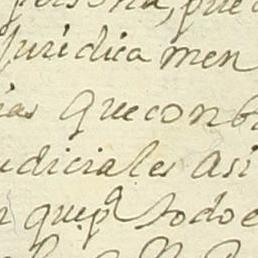 persona, que
Juridica men
ias que con
udiciales asi
que pa todo e